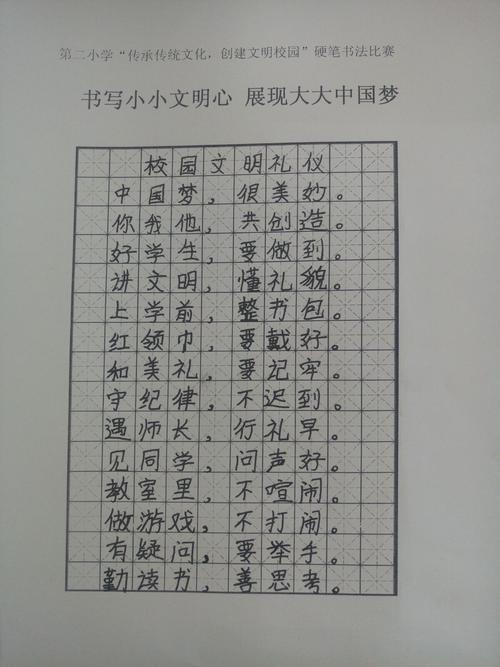 第二小学“传承传统文化，创建文明校园”硬笔书法比赛
书写小小文明心 展现大大中国梦
校园文明礼仪
中国梦，很美妙。
你我他，共创造。
好学生，要做到。
讲文明，懂礼貌。
上学前，整书包。
红领巾，要戴好。
和美礼，要记牢。
守纪律，不迟到。
遇师长，行礼早。
见同学，问声好。
教室里，不喧闹。
做游戏，不打闹。
有疑问，要举手。
勤读书，善思考。